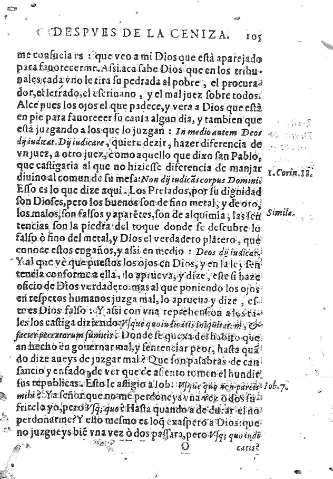 DESPVES DE LA CENIZA. 105
me consuela es: que veo a mi Dios que està aparejado
para fauorecerme. Assi aca sabe Dios que en los tribu-
nales, cada vno le tira su pedrada al pobre, el procura-
dor, el letrado, el escriuano, y el mal juez sobre todos.
Alce pues los ojos el que padece, y vera a Dios que està
en pie para fauorecer su causa algun dia, y tambien que
està juzgando a los que lo juzgan: In medio autem Deos
dijudicat. Dijudicare, quiere dezir, hazer diferencia de
vn juez, a otro juez, como aquello que dixo san Pablo,
que castigaria al que no hiziesse diferencia de manjar
diuino al comun de su mesa Non dijudicās corpus Domini
1. Corin. 11.
Esso es lo que dize aqui. Los Prelados, por su dignidad
son Dioses, pero los buenos son de fino metal, y de oro,
los malos, son falsos y aparētes, son de alquimia; las sen
Simile.
tencias son la piedra del toque donde se descubre lo
falso ò fino del metal, y Dios el verdadero platero, que
conoce estos engaños, y assi en medio: Deos dijudicat.
Y al que vè que puestos los ojos en Dios, y en la ley sen
tencia conforme a ella, lo aprueua, y dize, este si haze
oficio de Dios verdadero: mas al que poniendo los ojos
en respetos humanos juzga mal, lo aprueua y dize, es-
te es Dios falso: Y assi con vna reprehension a los ta-
les los castiga diziendo Vsque quo iudicatis iniquitatem, &
facies peccatorum sumitis? Donde se quexa del habito que
an hecho en gouernar mal, y sentenciar peor, hasta quā
do dize aueys de juzgar mal? Que son palabras de can-
sancio y enfado, de ver que de assiento tomen el hundir
sus republicas. Esto le assigia a Iob: Vsque quo non parcis
Iob. 7.
mihi? Ya señor que no me perdoneys vna vez o dos su-
frirelo yo, pero Vsq; quo? Hasta quando a de durar el no
perdonarme? Y esto mesmo es loq̄ exaspero a Dios: que
no juzgueys biē vna vez ò dos passara, pero Vsq; quo iudi
O
catis?